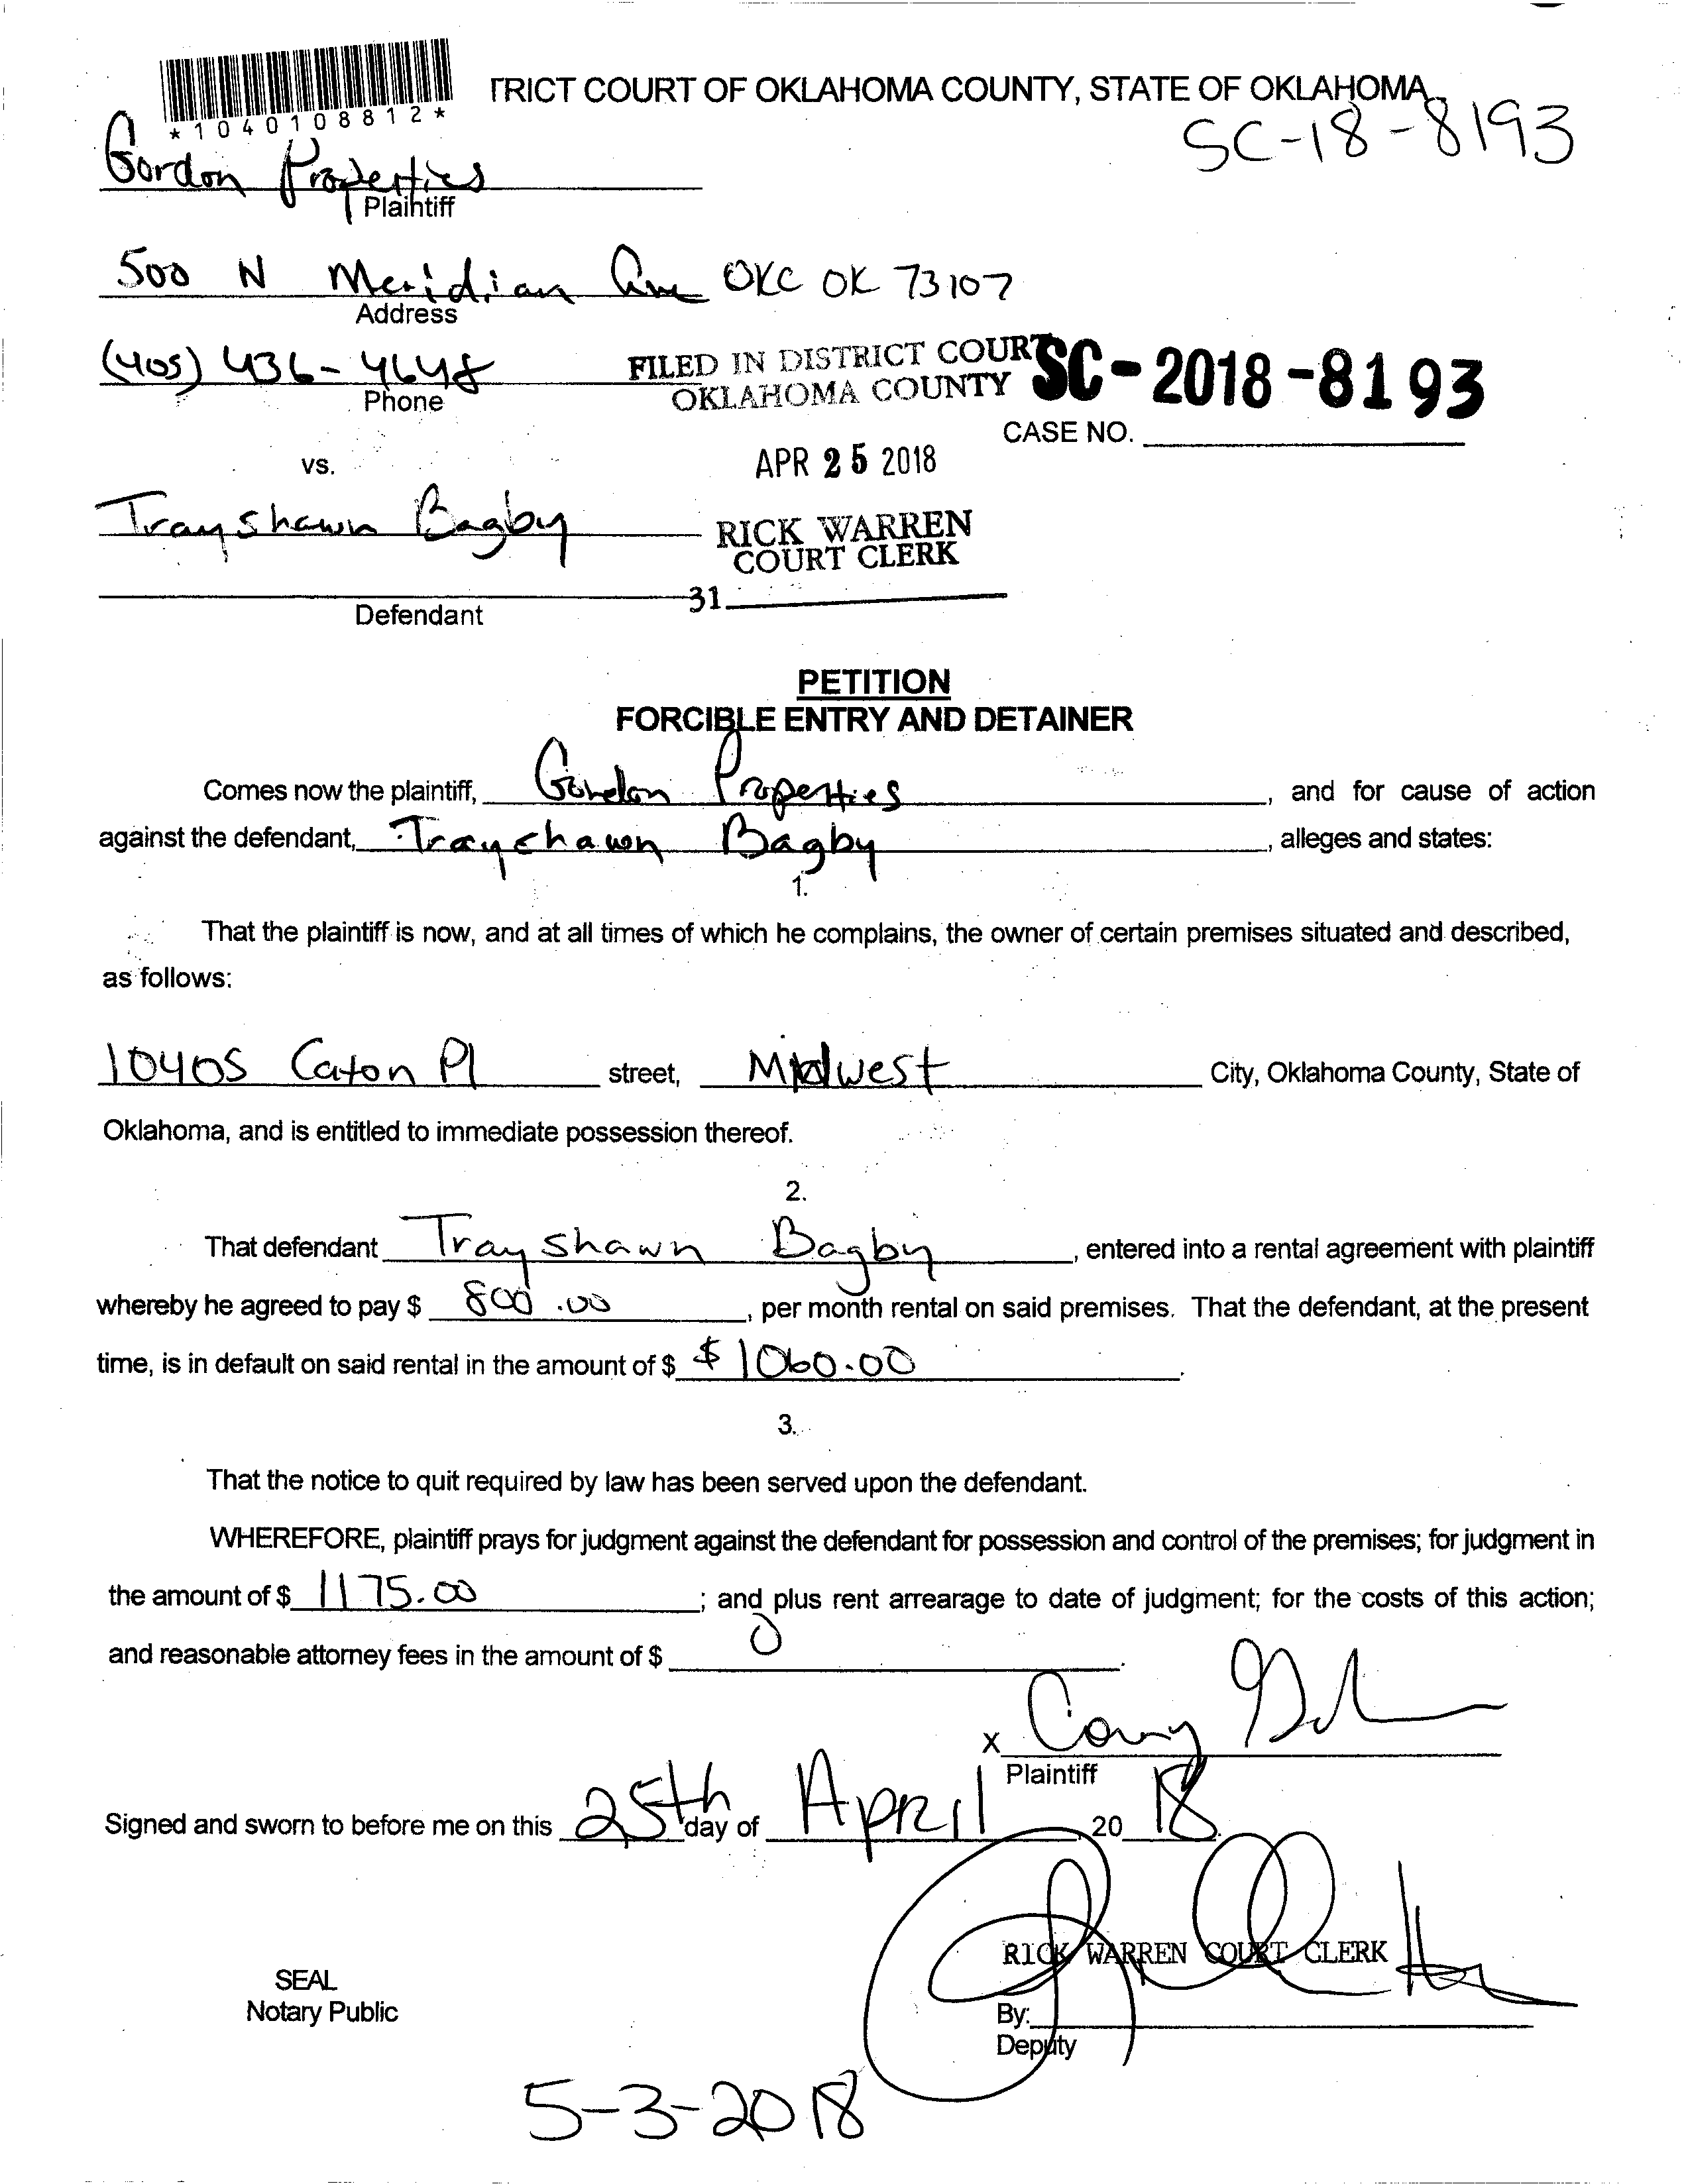 *1040108812*
TRICT COURT OF OKLAHOMA COUNTY, STATE OF OKLAHOMA
SC-18-8193
Gordon Properties
Plaintiff
500 N Meridian Ave OKC OK 73107
Address
(405) 436-4648
Phone
FILED IN DISTRICT COURT
OKLAHOMA COUNTY
SC-2018-8193
CASE NO.
vs.
APR 25 2018
Trayshawn Bagby
RICK WARREN
COURT CLERK
31
Defendant
PETITION
FORCIBLE ENTRY AND DETAINER
Comes now the plaintiff, Gordon Properties, and for cause of action
against the defendant, Trayshawn Bagby, alleges and states:
1.
That the plaintiff is now, and at all times of which he complains, the owner of certain premises situated and described,
as follows:
10405 Caton Pl street, Midwest City, Oklahoma County, State of
Oklahoma, and is entitled to immediate possession thereof.
2.
That defendant Trayshawn Bagby, entered into a rental agreement with plaintiff
whereby he agreed to pay $ 800.00, per month rental on said premises. That the defendant, at the present
time, is in default on said rental in the amount of $ $1060.00.
3.
That the notice to quit required by law has been served upon the defendant.
WHEREFORE, plaintiff prays for judgment against the defendant for possession and control of the premises; for judgment in
the amount of $ 1175.00; and plus rent arrearage to date of judgment; for the costs of this action;
and reasonable attorney fees in the amount of $ 0.
X
Plaintiff
Signed and sworn to before me on this 25th day of April, 20 18.
RICK WARREN COURT CLERK
SEAL
Notary Public
By:
Deputy
5-3-2018